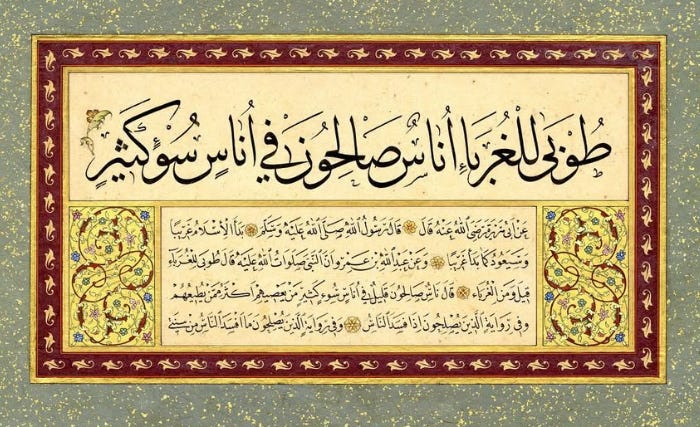 طُوبَى لِلْغُرَبَاءِ أُنَاسٌ صَالِحُونَ فِي أُنَاسِ سُوْءٍ كَثِيرٍ
عَنْ أَبِي هُرَيْرَةَ رَضِيَ اللهُ عَنْهُ قَالَ قَالَ رَسُولُ اللهِ صَلَّى اللهُ عَلَيْهِ وَسَلَّمَ بَدَأَ الْإِسْلَامُ غَرِيبًا
وَسَيَعُودُ كَمَا بَدَأَ غَرِيبًا وَعَنْ عَبْدِ اللهِ بْنِ عَمْرٍو أَنَّ النَّبِيَّ صَلَوَاتُ اللهِ عَلَيْهِ قَالَ طُوبَى لِلْغُرَبَاءِ
قِيلَ وَمَنِ الْغُرَبَاءُ قَالَ نَاسٌ صَالِحُونَ قَلِيلٌ فِي نَاسِ سُوءٍ كَثِيرٍ مَنْ يَعْصِيهِمْ أَكْثَرُ مِمَّنْ يُطِيعُهُمْ
وَفِي رِوَايَةٍ الَّذِينَ يُصْلِحُونَ إِذَا فَسَدَ النَّاسُ وَفِي رِوَايَةٍ الَّذِينَ يُصْلِحُونَ مَا أَفْسَدَ النَّاسُ مِنْ سُنَّتِي